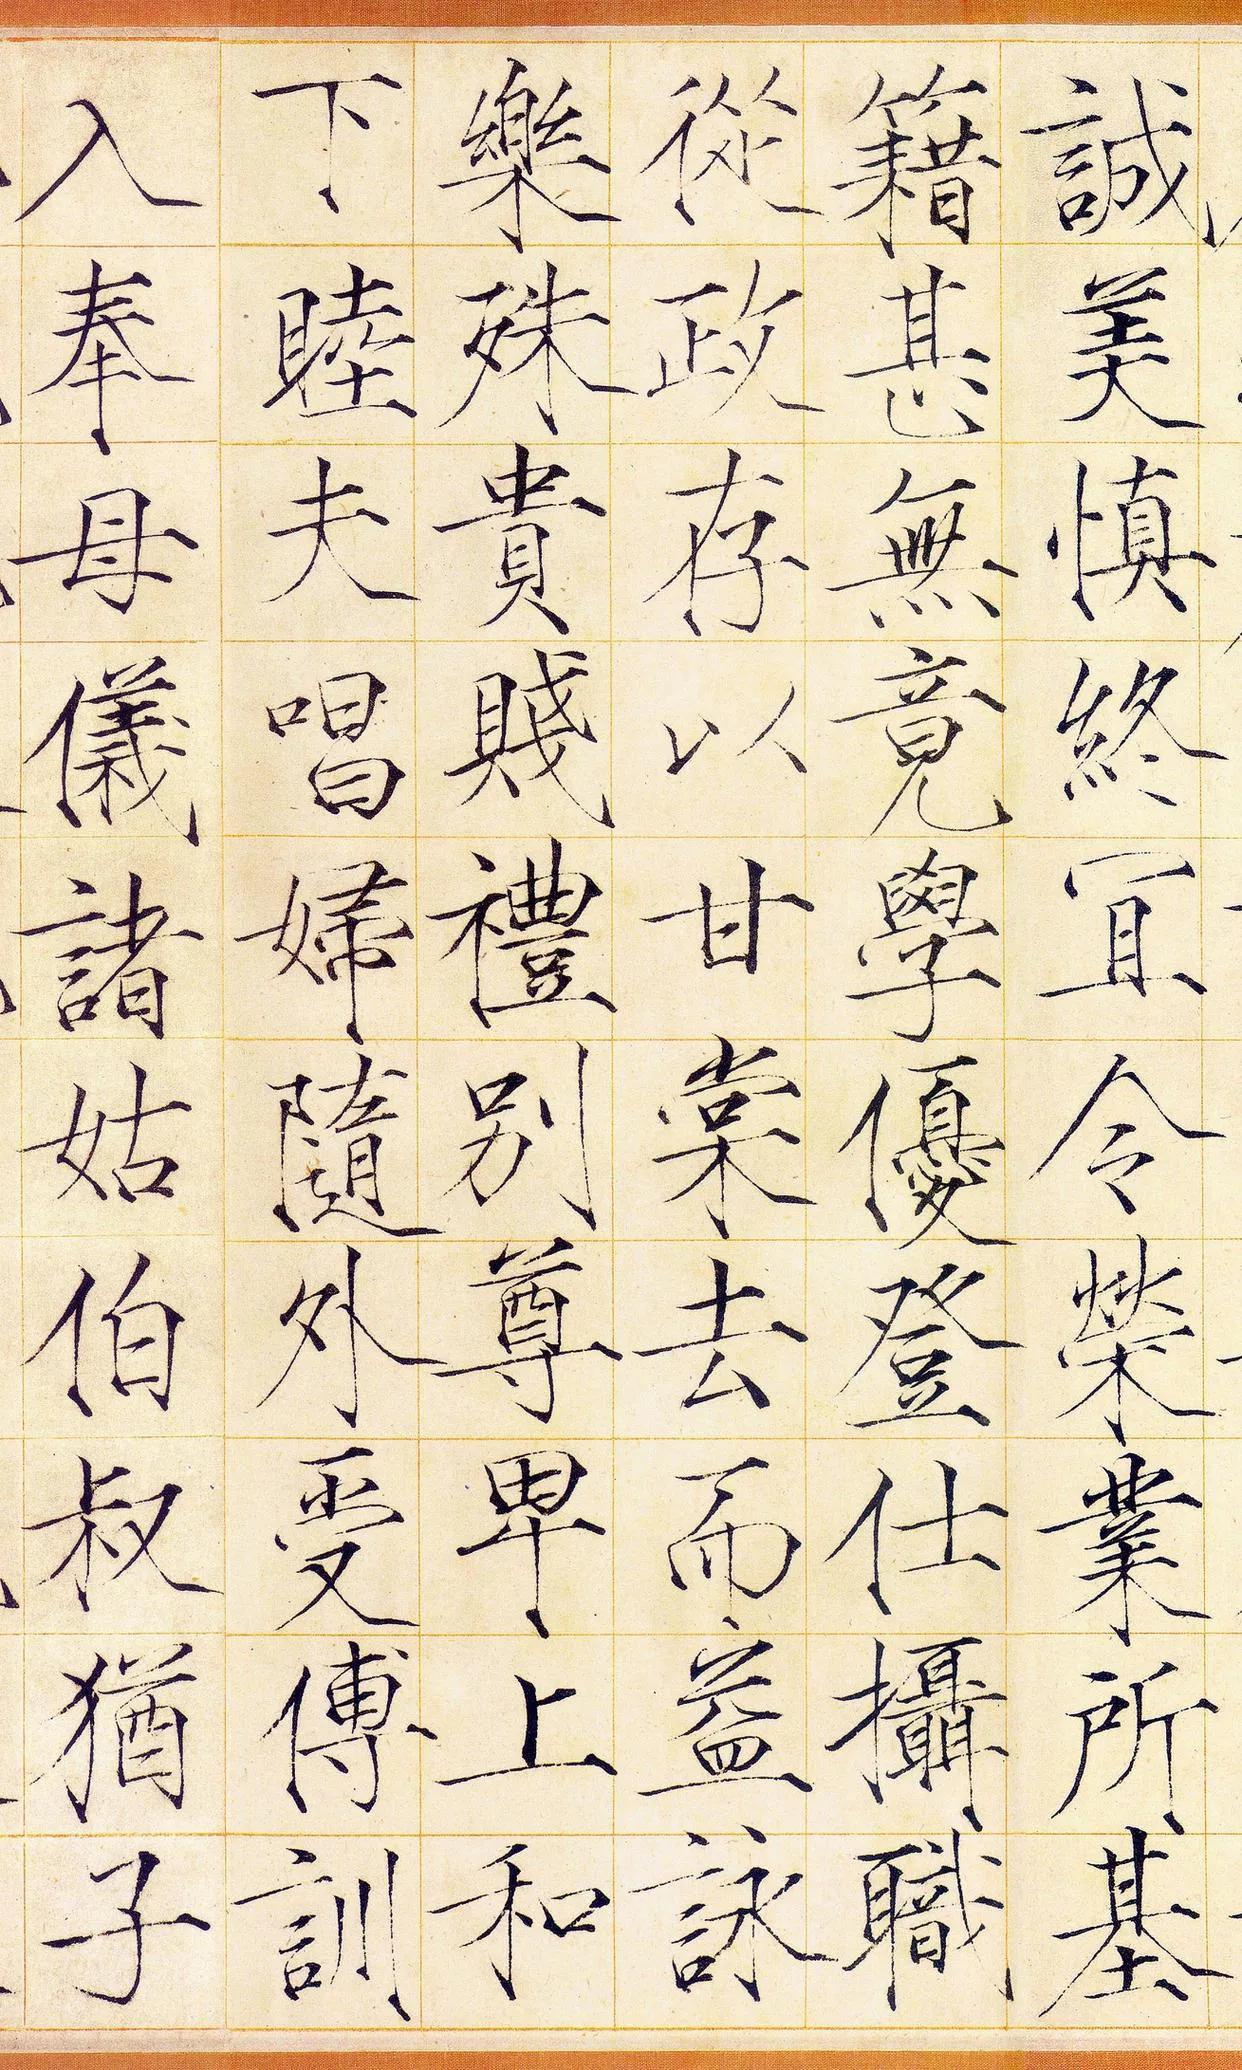 誠美慎終宜令榮業所基
籍甚無竟學優登仕攝職
從政存以甘棠去而益詠
樂殊貴賤禮別尊卑上和
下睦夫唱婦隨外受傅訓
入奉母儀諸姑伯叔猶子